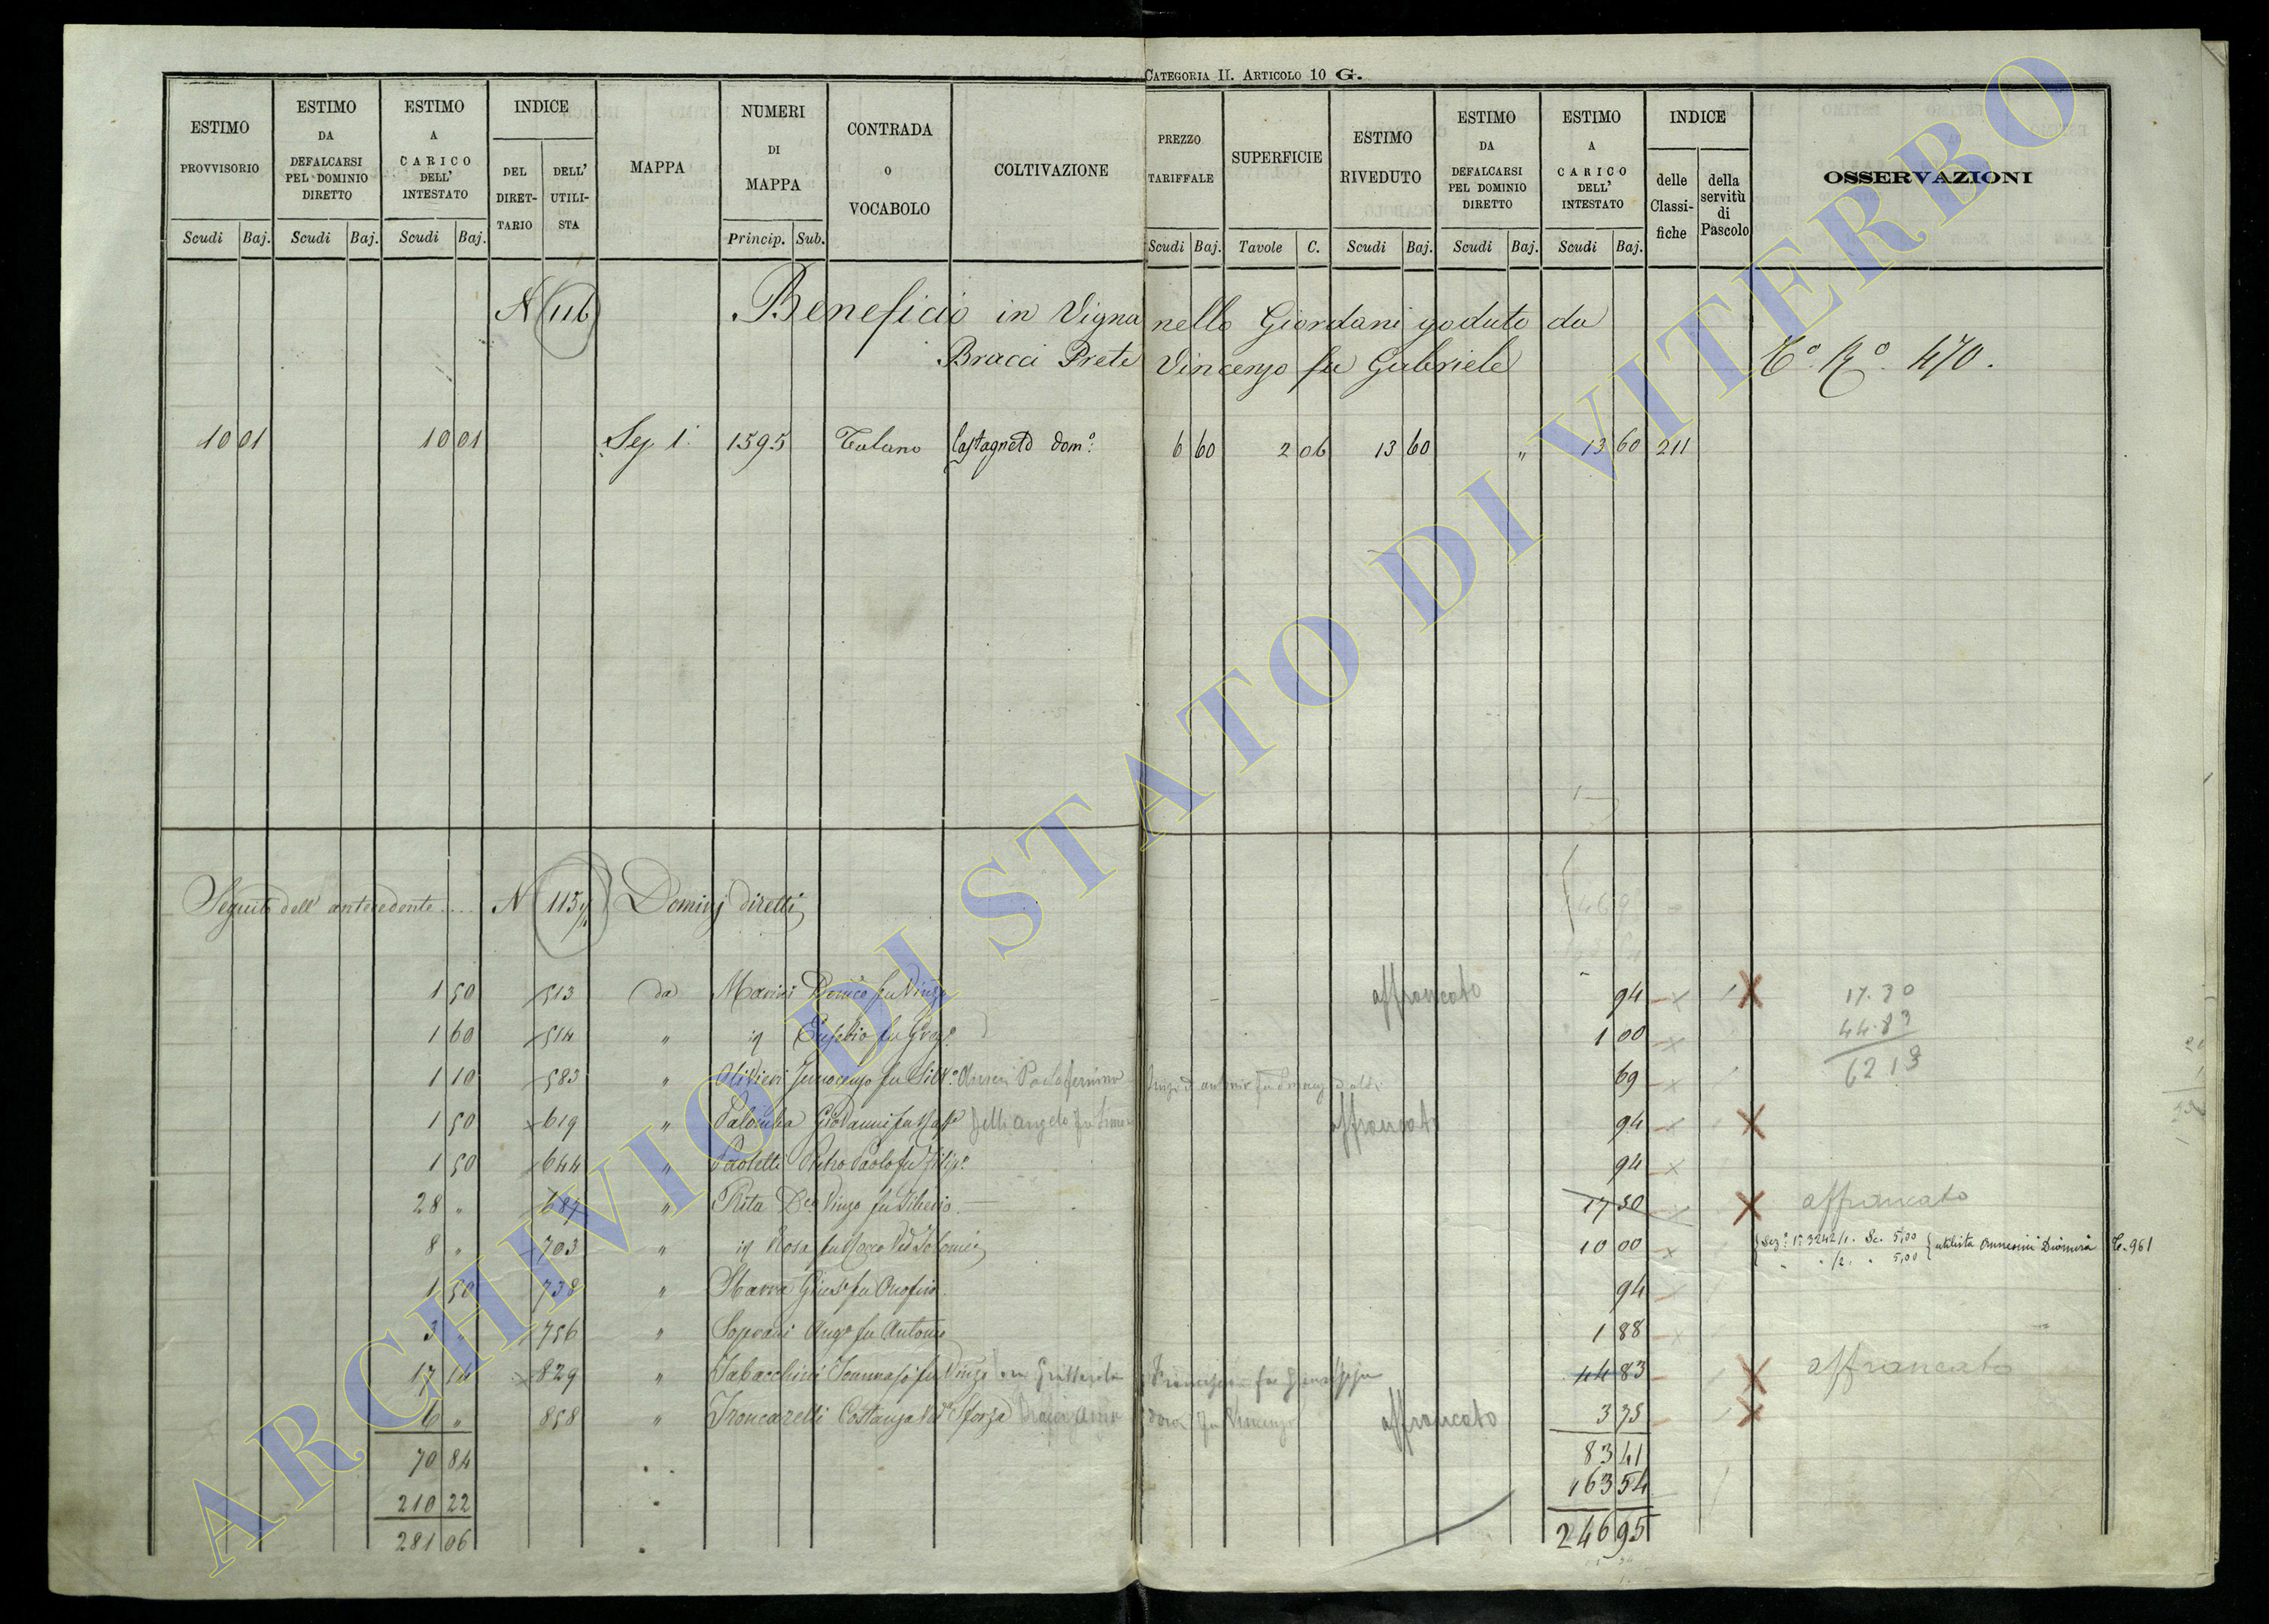 CATEGORIA II. ARTICOLO 10 G.
ESTIMO PROVVISORIO
ESTIMO DA DEFALCARSI PEL DOMINIO DIRETTO
ESTIMO A CARICO DELL' INTESTATO
INDICE
DEL DIRETTARIO
DELL' UTILISTA
MAPPA
NUMERI DI MAPPA
CONTRADA O VOCABOLO
COLTIVAZIONE
PREZZO TARIFFALE
SUPERFICIE
ESTIMO RIVEDUTO
ESTIMO DA DEFALCARSI PEL DOMINIO DIRETTO
ESTIMO A CARICO DELL' INTESTATO
INDICE
delle Classifiche
della servitù di Pascolo
OSSERVAZIONI
Scudi Baj. Scudi Baj. Scudi Baj. Princip. Sub. Scudi Baj. Tavole C. Scudi Baj. Scudi Baj. Scudi Baj.
N 116 Beneficio in Vignanello Giordani goduto da
Bracci Prete Vincenzo fu Gabriele
470.
10 01 10 01 Sez 1. 1595 Castagneto dom.o 6 60 2 06 13 60 " 13 60 211
Seguito dell' antecedente.... N 115 Dominj diretti
1 50 513 da Marini fu affrancato 94 17.30
1 60 514 " id Eusebio fu 1 00 44.83
1 10 583 " Olivieri Innocenzo fu 69 62 13
1 50 619 " Palomba Giovanni fu affrancato 94
1 50 644 " Paoletti Pietro Paolo fu 94
28 " 687 " Rita fu 17 30 affrancato
8 " 703 " id Rosa fu Rocco 10 00 3242/1. Sc. 5,00 utilista 961
" /2. " 5,00
1 50 738 " fu Onofrio 94
3 " 756 " Sopvani Ang.o fu Antonio 1 88
17 829 " Tabacchini Tommaso fu 44 83 affrancato
6 " 858 " Troncarelli Costanza Ved.a Sforza affrancato 3 75
70 84 83 41
210 22 163 54
281 06 246 95
ARCHIVIO DI STATO DI VITERBO